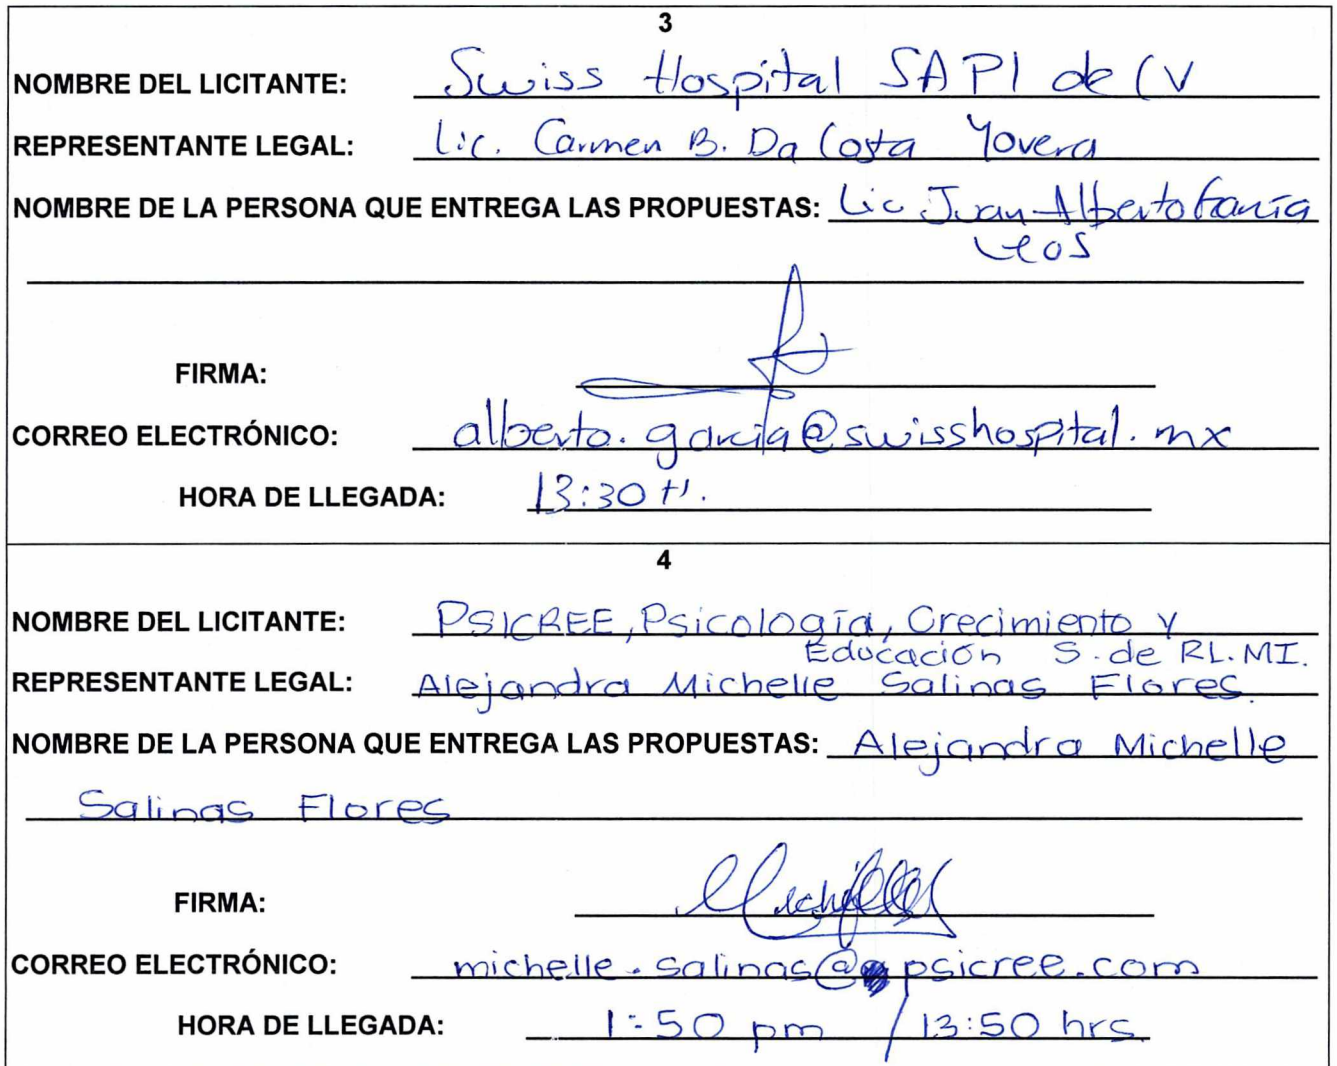 3
NOMBRE DEL LICITANTE: Swiss Hospital SAPI de CV
REPRESENTANTE LEGAL: Lic. Carmen B. Da Costa Yovera
NOMBRE DE LA PERSONA QUE ENTREGA LAS PROPUESTAS: Lic Juan Alberto García
Leos
FIRMA:
CORREO ELECTRÓNICO: alberto.garcia@swisshospital.mx
HORA DE LLEGADA: 13:30 H.
4
NOMBRE DEL LICITANTE: PSICREE, Psicología, Crecimiento y
Educación S. de RL. MI.
REPRESENTANTE LEGAL: Alejandra Michelle Salinas Flores.
NOMBRE DE LA PERSONA QUE ENTREGA LAS PROPUESTAS: Alejandra Michelle
Salinas Flores
FIRMA:
CORREO ELECTRÓNICO: michelle.salinas@psicree.com
HORA DE LLEGADA: 1:50 pm / 13:50 hrs